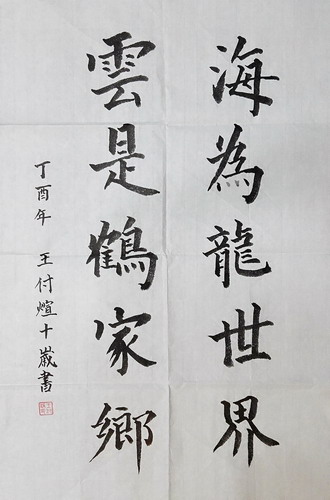 海為龍世界
雲是鶴家鄉
丁酉年 王付煊十歲書